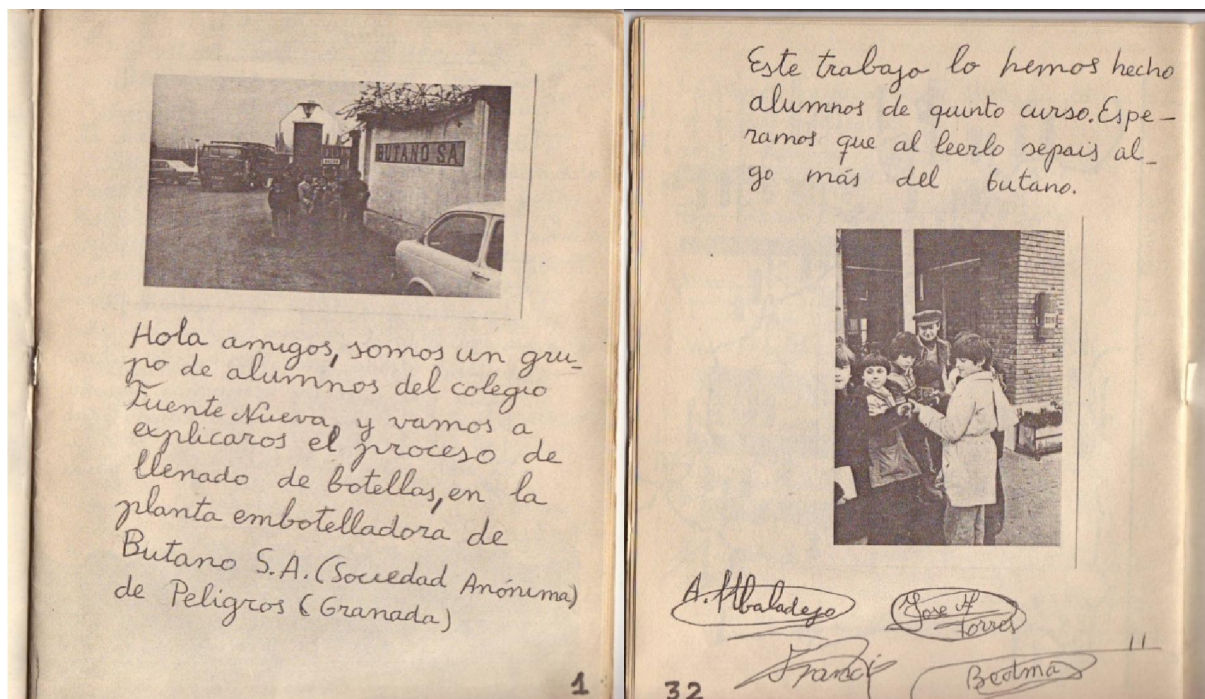 BUTANO SA
Hola amigos, somos un gru-
po de alumnos del colegio
Fuente Nueva, y vamos a
explicaros el proceso de
llenado de botellas, en la
planta embotelladora de
Butano S.A. (Sociedad Anónima)
de Peligros (Granada)
1
Este trabajo lo hemos hecho
alumnos de quinto curso. Espe-
ramos que al leerlo sepais al-
go más del butano.
A. Albaladejo
Jose
Torres
Franci
32